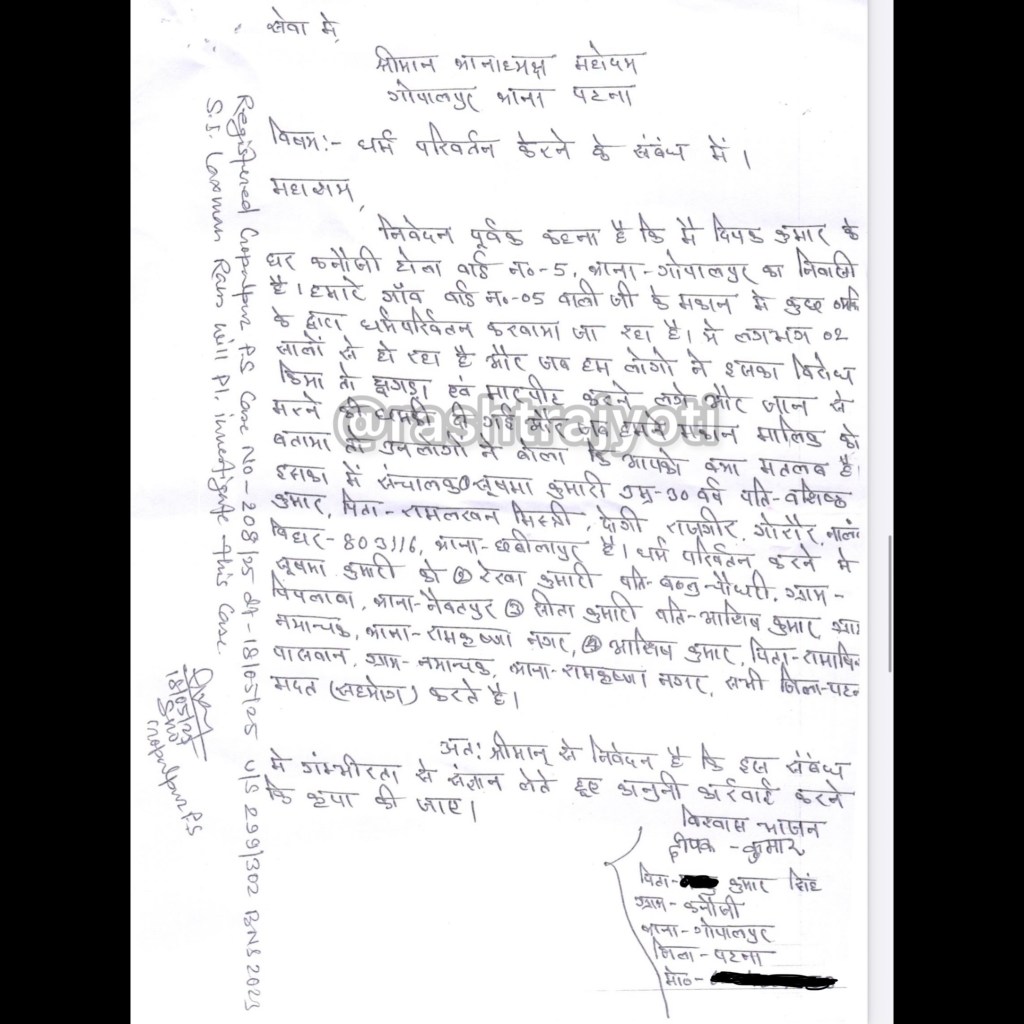 सेवा में,
श्रीमान थानाध्यक्ष महोदय
गोपालपुर थाना पटना
विषय:- धर्म परिवर्तन करने के संबंध में।
महाशय,
निवेदन पूर्वक कहना है कि मै दिपक कुमार के
घर कनौजी टोला वार्ड न०-5, थाना-गोपालपुर का निवासी
है। हमारे गाँव वार्ड न.-05 वाली जी के मकान मे कुछ
के द्वारा धर्मपरिर्वतन करवाया जा रहा है। ये लगभग 02
सालों से हो रहा है और जब हम लोगो ने इसका विरोध
किया तो झगड़ा एवं मारपीट करने लगे और जान से
मरने की धमकी दी गई और जब हमने मकान मालिक को
बताया तो उनलोगो ने बोला कि आपको क्या मतलब है।
इसका में संचालक ① सुषमा कुमारी उम्र-30 वर्ष पति-वशिष्ठ
कुमार, पिता-रामलखन मिस्त्री, राजगीर, गोरौर,
विहार-803116, थाना-छबीलापुर है। धर्म परिवर्तन करने मे
सूषमा कुमारी को ② रेखा कुमारी पति-बब्लु चौधरी, ग्राम-
पिपलावा, थाना-नैवतपुर ③ सीता कुमारी पति-आशिष कुमार
थाना-रामकृष्णा नगर, ④ आशिष कुमार, पिता-
पासवान, ग्राम- थाना-रामकृष्णा नगर, सभी जिला-
मदत (सहयोग) करते है।
अत: श्रीमान् से निवेदन है कि इस संबंध
मे गंम्भीरता से संज्ञान लेते हूए कानुनी कार्रवाई करने
कि कृपा की जाए।
विश्वास भाजन
दीपक कुमार
पिता- कुमार सिंह
ग्राम-कनौजी
थाना-गोपालपुर
जिला-पटना
मो०-
Registered Gopalpur P.S Case No-208/25 dt-18/05/25 U/S 299/302 BNS 2023
S.I. Laxman Ram will Pl. investigate this case
18/05/25
SHO
Gopalpur P.S
@rashtrajyoti